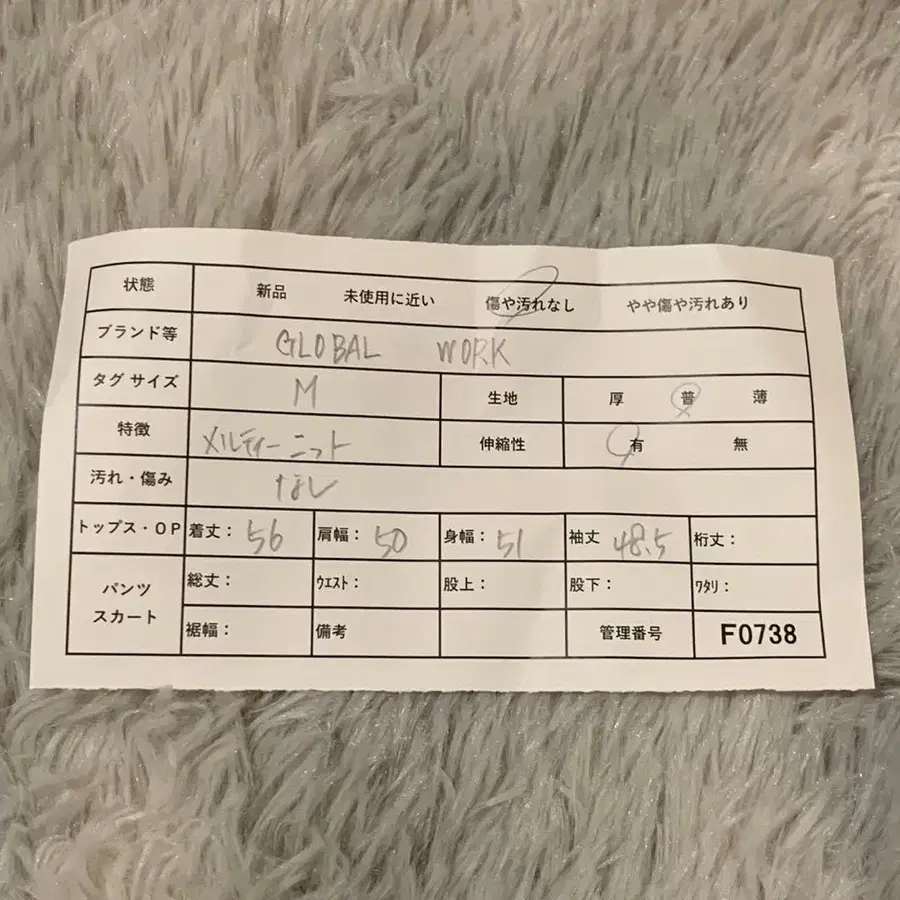 状態 新品 未使用に近い 傷や汚れなし やや傷や汚れあり
ブランド等 GLOBAL WORK
タグ サイズ M 生地 厚 普 薄
特徴 メルティーニット 伸縮性 有 無
汚れ・傷み なし
トップス・OP 着丈: 56 肩幅: 50 身幅: 51 袖丈 48.5 裄丈:
パンツ スカート 総丈: ウエスト: 股上: 股下: ワタリ:
裾幅: 備考 管理番号 F0738